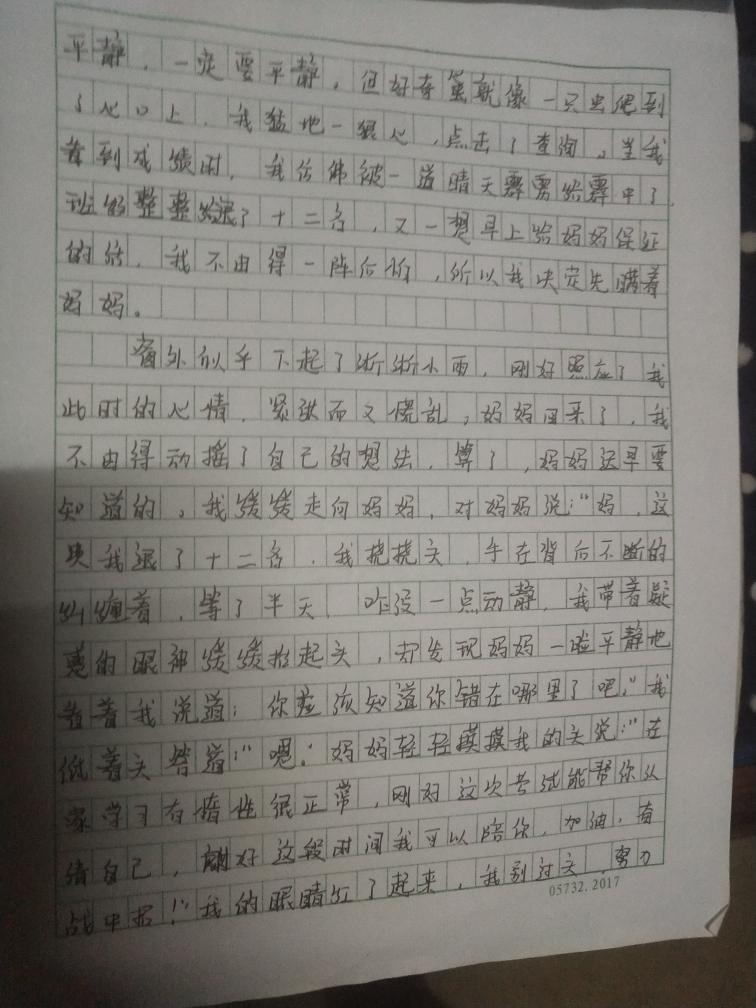 平静，一定要平静，但好奇虽就像一只虫爬到
了心口上，我猛地一狠心，点击了查询。当我
看到成绩时，我仿佛被一道晴天霹雳给霹中了，
班的整整退了十二名，又一想早上给妈妈保证
的话，我不由得一阵后怕，所以我决定先瞒着
妈妈。
窗外似乎下起了淅淅小雨，刚好照应了我
此时的心情，紧张而又慌乱，妈妈回来了，我
不由得动摇了自己的想法，算了，妈妈迟早要
知道的，我缓缓走向妈妈，对妈妈说：“妈，这
次我退了十二名，我挠挠头，手在背后不断的
纠缠着，等了半天，咋没一点动静，我带着疑
惑的眼神缓缓抬起头，却发现妈妈一脸平静地
看着我说道：你应该知道你错在哪里了吧。”我
低着头答道：“嗯。”妈妈轻轻摸摸我的头说：“在
家学习有惰性很正常，刚好这次考试能帮你认
清自己，刚好这段时间我可以陪你，加油，备
战中招！”我的眼睛红了起来，我别过头，努力
05732.2017